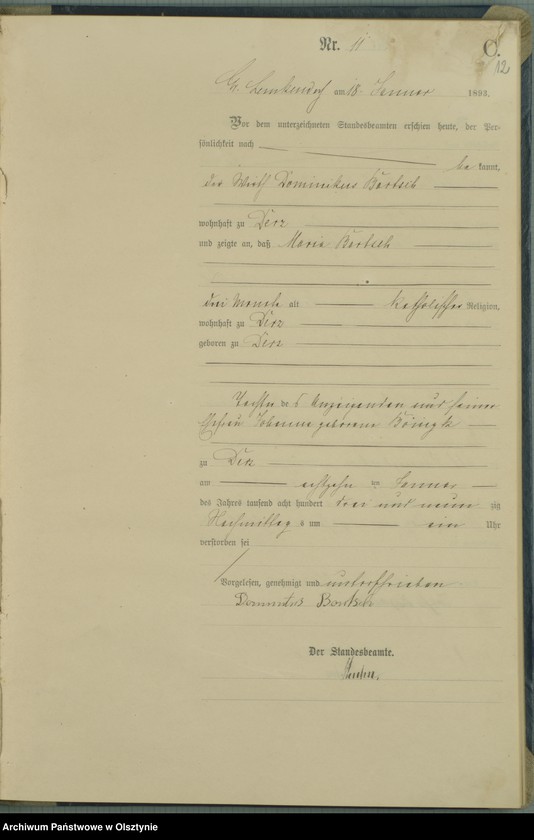 Nr. 11
C.
12
Gr. Lemkendorf am 18. Januar 1893.
Vor dem unterzeichneten Standesbeamten erschien heute, der Per-
sönlichkeit nach
be kannt,
der Wirth Dominikus Bartsch
wohnhaft zu Derz
und zeigte an, daß Maria Bartsch
drei Monate alt katholischer Religion,
wohnhaft zu Derz
geboren zu Derz
Tochter des Anzeigenden und seiner
Ehefrau geborene
zu Derz
am achtzehn ten Januar
des Jahres tausend acht hundert drei und neun zig
Nachmittag s um ein Uhr
verstorben sei
Vorgelesen, genehmigt und unterschrieben
Bartsch
Der Standesbeamte.
Archiwum Państwowe w Olsztynie